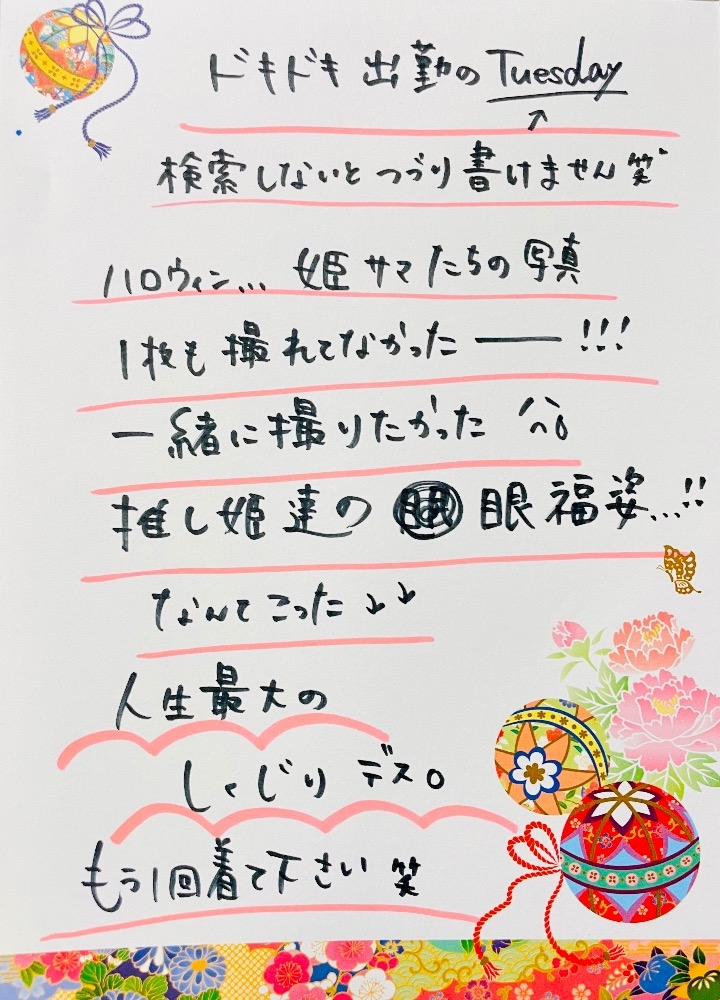 ドキドキ 出勤の Tuesday
↑
検索しないと つづり 書けません 笑
ハロウィン... 姫サマたちの 写真
1枚も 撮れてなかった ―― !!!
一緒に撮りたかった
推し姫達の 眼福姿...!!
なんてこった ↓↓
人生最大の
しくじり デス。
もう1回着て下さい 笑